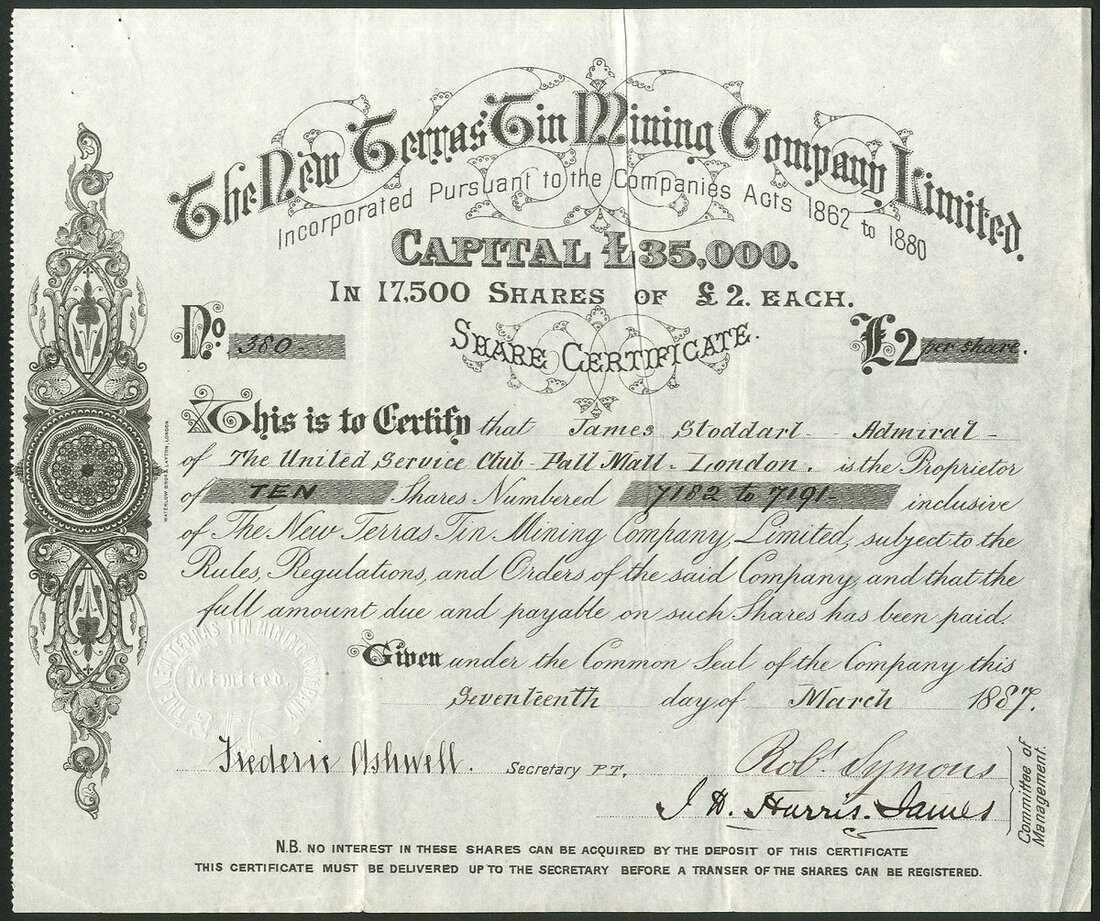 The New Terras Tin Mining Company Limited.
Incorporated Pursuant to the Companies Acts 1862 to 1880
CAPITAL £35,000.
IN 17,500 SHARES OF £2. EACH.
No. 380
SHARE CERTIFICATE.
£2 per share.
This is to Certify that James Stoddart Admiral
of The United Service Club Pall Mall London. is the Proprietor
of TEN Shares Numbered 7182 to 7191 inclusive
of The New Terras Tin Mining Company, Limited, subject to the
Rules, Regulations, and Orders of the said Company, and that the
full amount due and payable on such Shares has been paid.
Given under the Common Seal of the Company this
Seventeenth day of March 1887.
Frederic Ashwell. Secretary P.T.
Robt. Symons
J. H. Harris. James
Committee of
Management.
N.B. NO INTEREST IN THESE SHARES CAN BE ACQUIRED BY THE DEPOSIT OF THIS CERTIFICATE
THIS CERTIFICATE MUST BE DELIVERED UP TO THE SECRETARY BEFORE A TRANSER OF THE SHARES CAN BE REGISTERED.
WATERLOW BROS & LAYTON, LONDON
THE NEW TERRAS TIN MINING COMPANY
Limited.